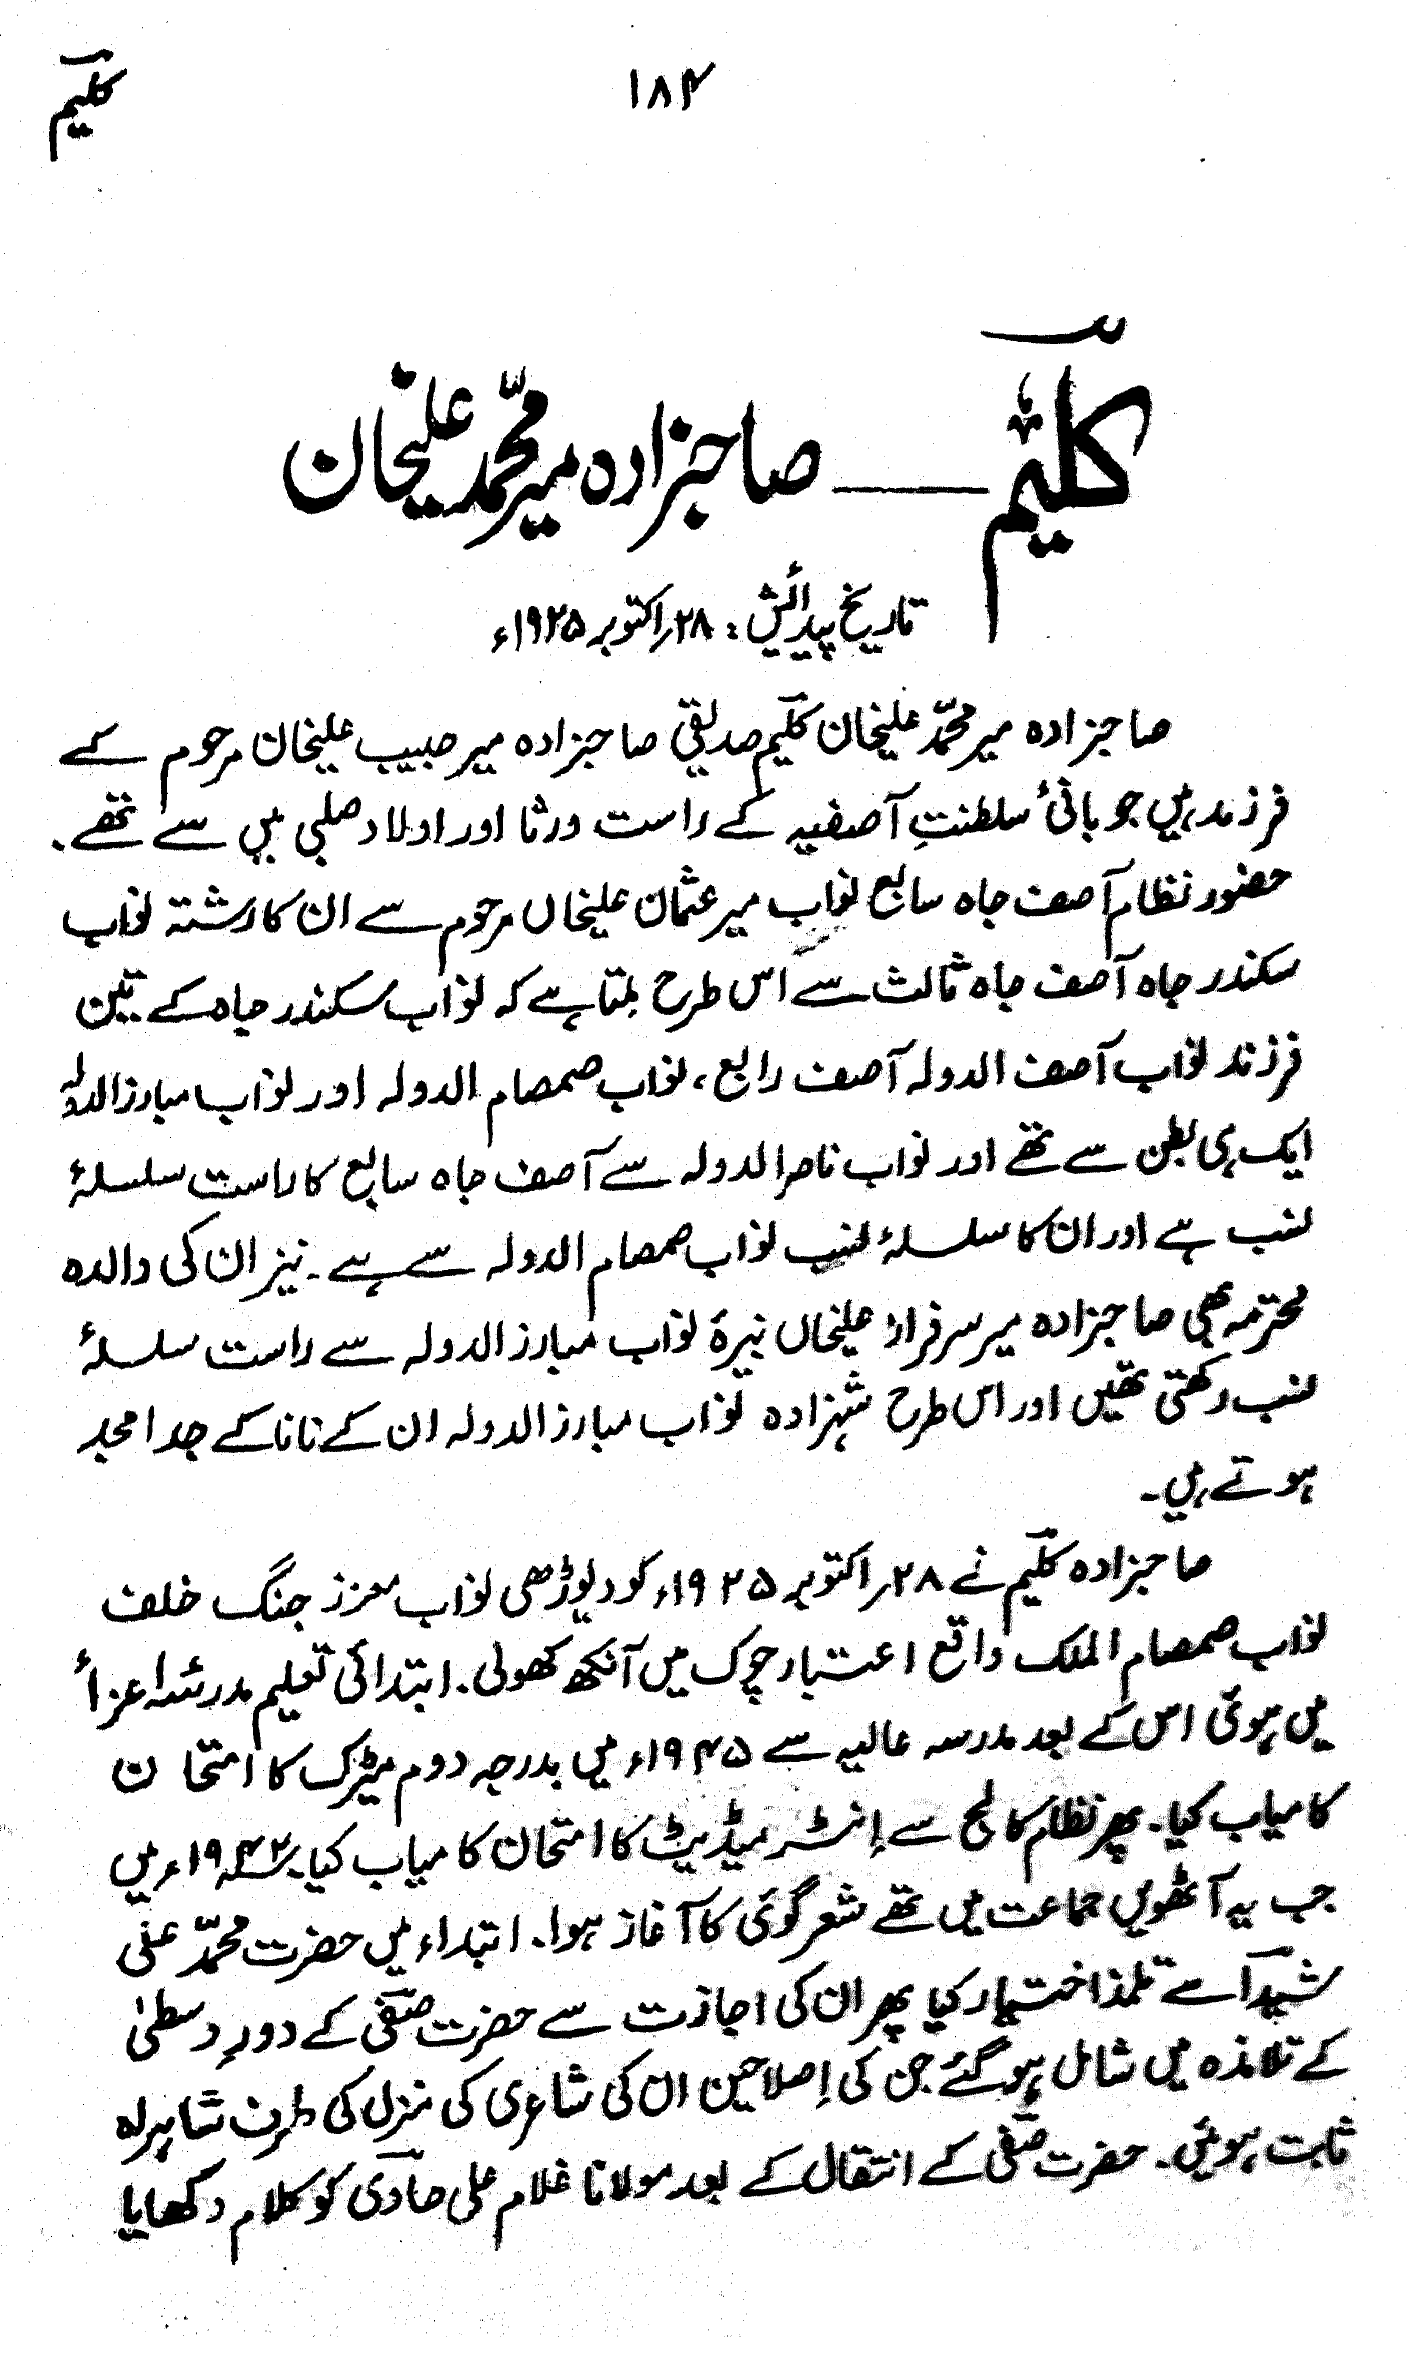 کلیم
۱۸۴
کلیم ــــ صاحبزادہ میر محمّد علیخان
تاریخ پیدائش : ۲۸؍اکتوبر ۱۹۲۵ء
صاحبزادہ میر محمّد علیخان کلیم صدیقی صاحبزادہ میر حبیب علیخان مرحوم کے
فرزند ہیں جو بانیٔ سلطنتِ آصفیہ کے راست ورثا اور اولاد صلبی میں سے تھے۔
حضور نظام آصف جاہ سابع نواب میر عثمان علیخاں مرحوم سے ان کا رشتہ نواب
سکندر جاہ آصف جاہ ثالث سے اس طرح ملتا ہے کہ نواب سکندر جاہ کے تین
فرزند نواب آصف الدولہ آصف رابع، نواب صمصام الدولہ اور نواب مبارز الدولہ
ایک ہی بطن سے تھے اور نواب ناصر الدولہ سے آصف جاہ سابع کا راست سلسلۂ
نسب ہے اور ان کا سلسلۂ نسب نواب صمصام الدولہ سے ہے۔ نیز ان کی والدہ
محترمہ بھی صاحبزادہ میر سرفراز علیخاں نبیرۂ نواب مبارز الدولہ سے راست سلسلۂ
نسب رکھتی تھیں اور اس طرح شہزادہ نواب مبارز الدولہ ان کے نانا کے جد امجد
ہوتے ہیں۔
صاحبزادہ کلیم نے ۲۸؍اکتوبر ۱۹۲۵ء کو دیوڑھی نواب معزز جنگ خلف
نواب صمصام الملک واقع اعتبار چوک میں آنکھ کھولی۔ ابتدائی تعلیم مدرسۂ اعزأ
میں ہوئی اس کے بعد مدرسہ عالیہ سے ۱۹۴۵ء میں بدرجہ دوم میٹرک کا امتحان
کامیاب کیا۔ پھر نظام کالج سے اِنٹر میڈیٹ کا امتحان کامیاب کیا۔ ۱۹۴۲ء میں
جب یہ آٹھویں جماعت میں تھے شعر گوئی کا آغاز ہوا۔ ابتداء میں حضرت محمّد غنی
شیدا سے تلمذ اختیار کیا پھر ان کی اجازت سے حضرت صفی کے دورِ وسطیٰ
کے تلامذہ میں شامل ہو گئے جن کی اِصلاحین ان کی شاعری کی منزل کی طرف شاہراہ
ثابت ہوئیں۔ حضرت صفی کے انتقال کے بعد مولانا غلام علی حاوی کو کلام دکھایا